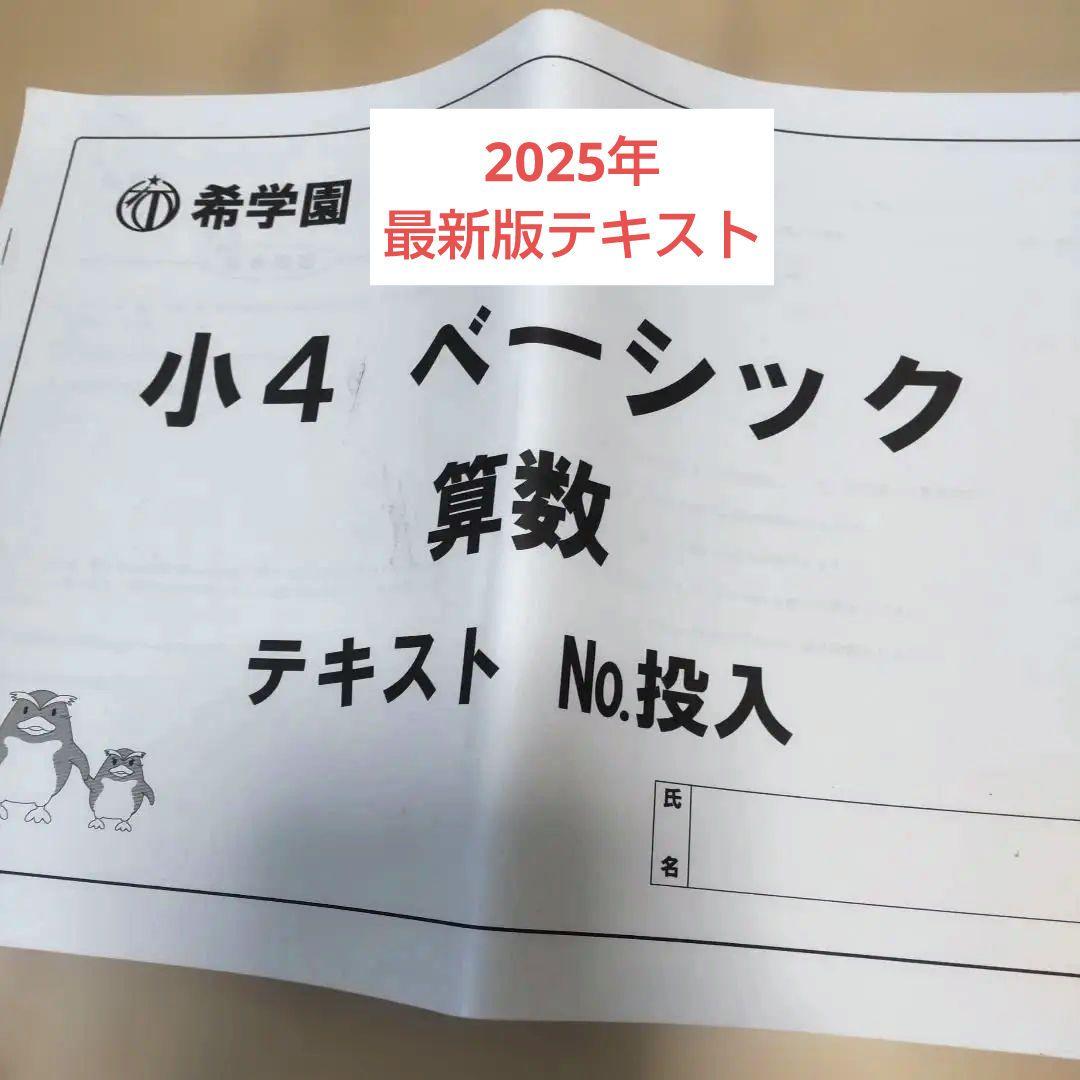 2025年
最新版テキスト
希学園
小4 ベーシック
算数
テキスト No.投入
氏名